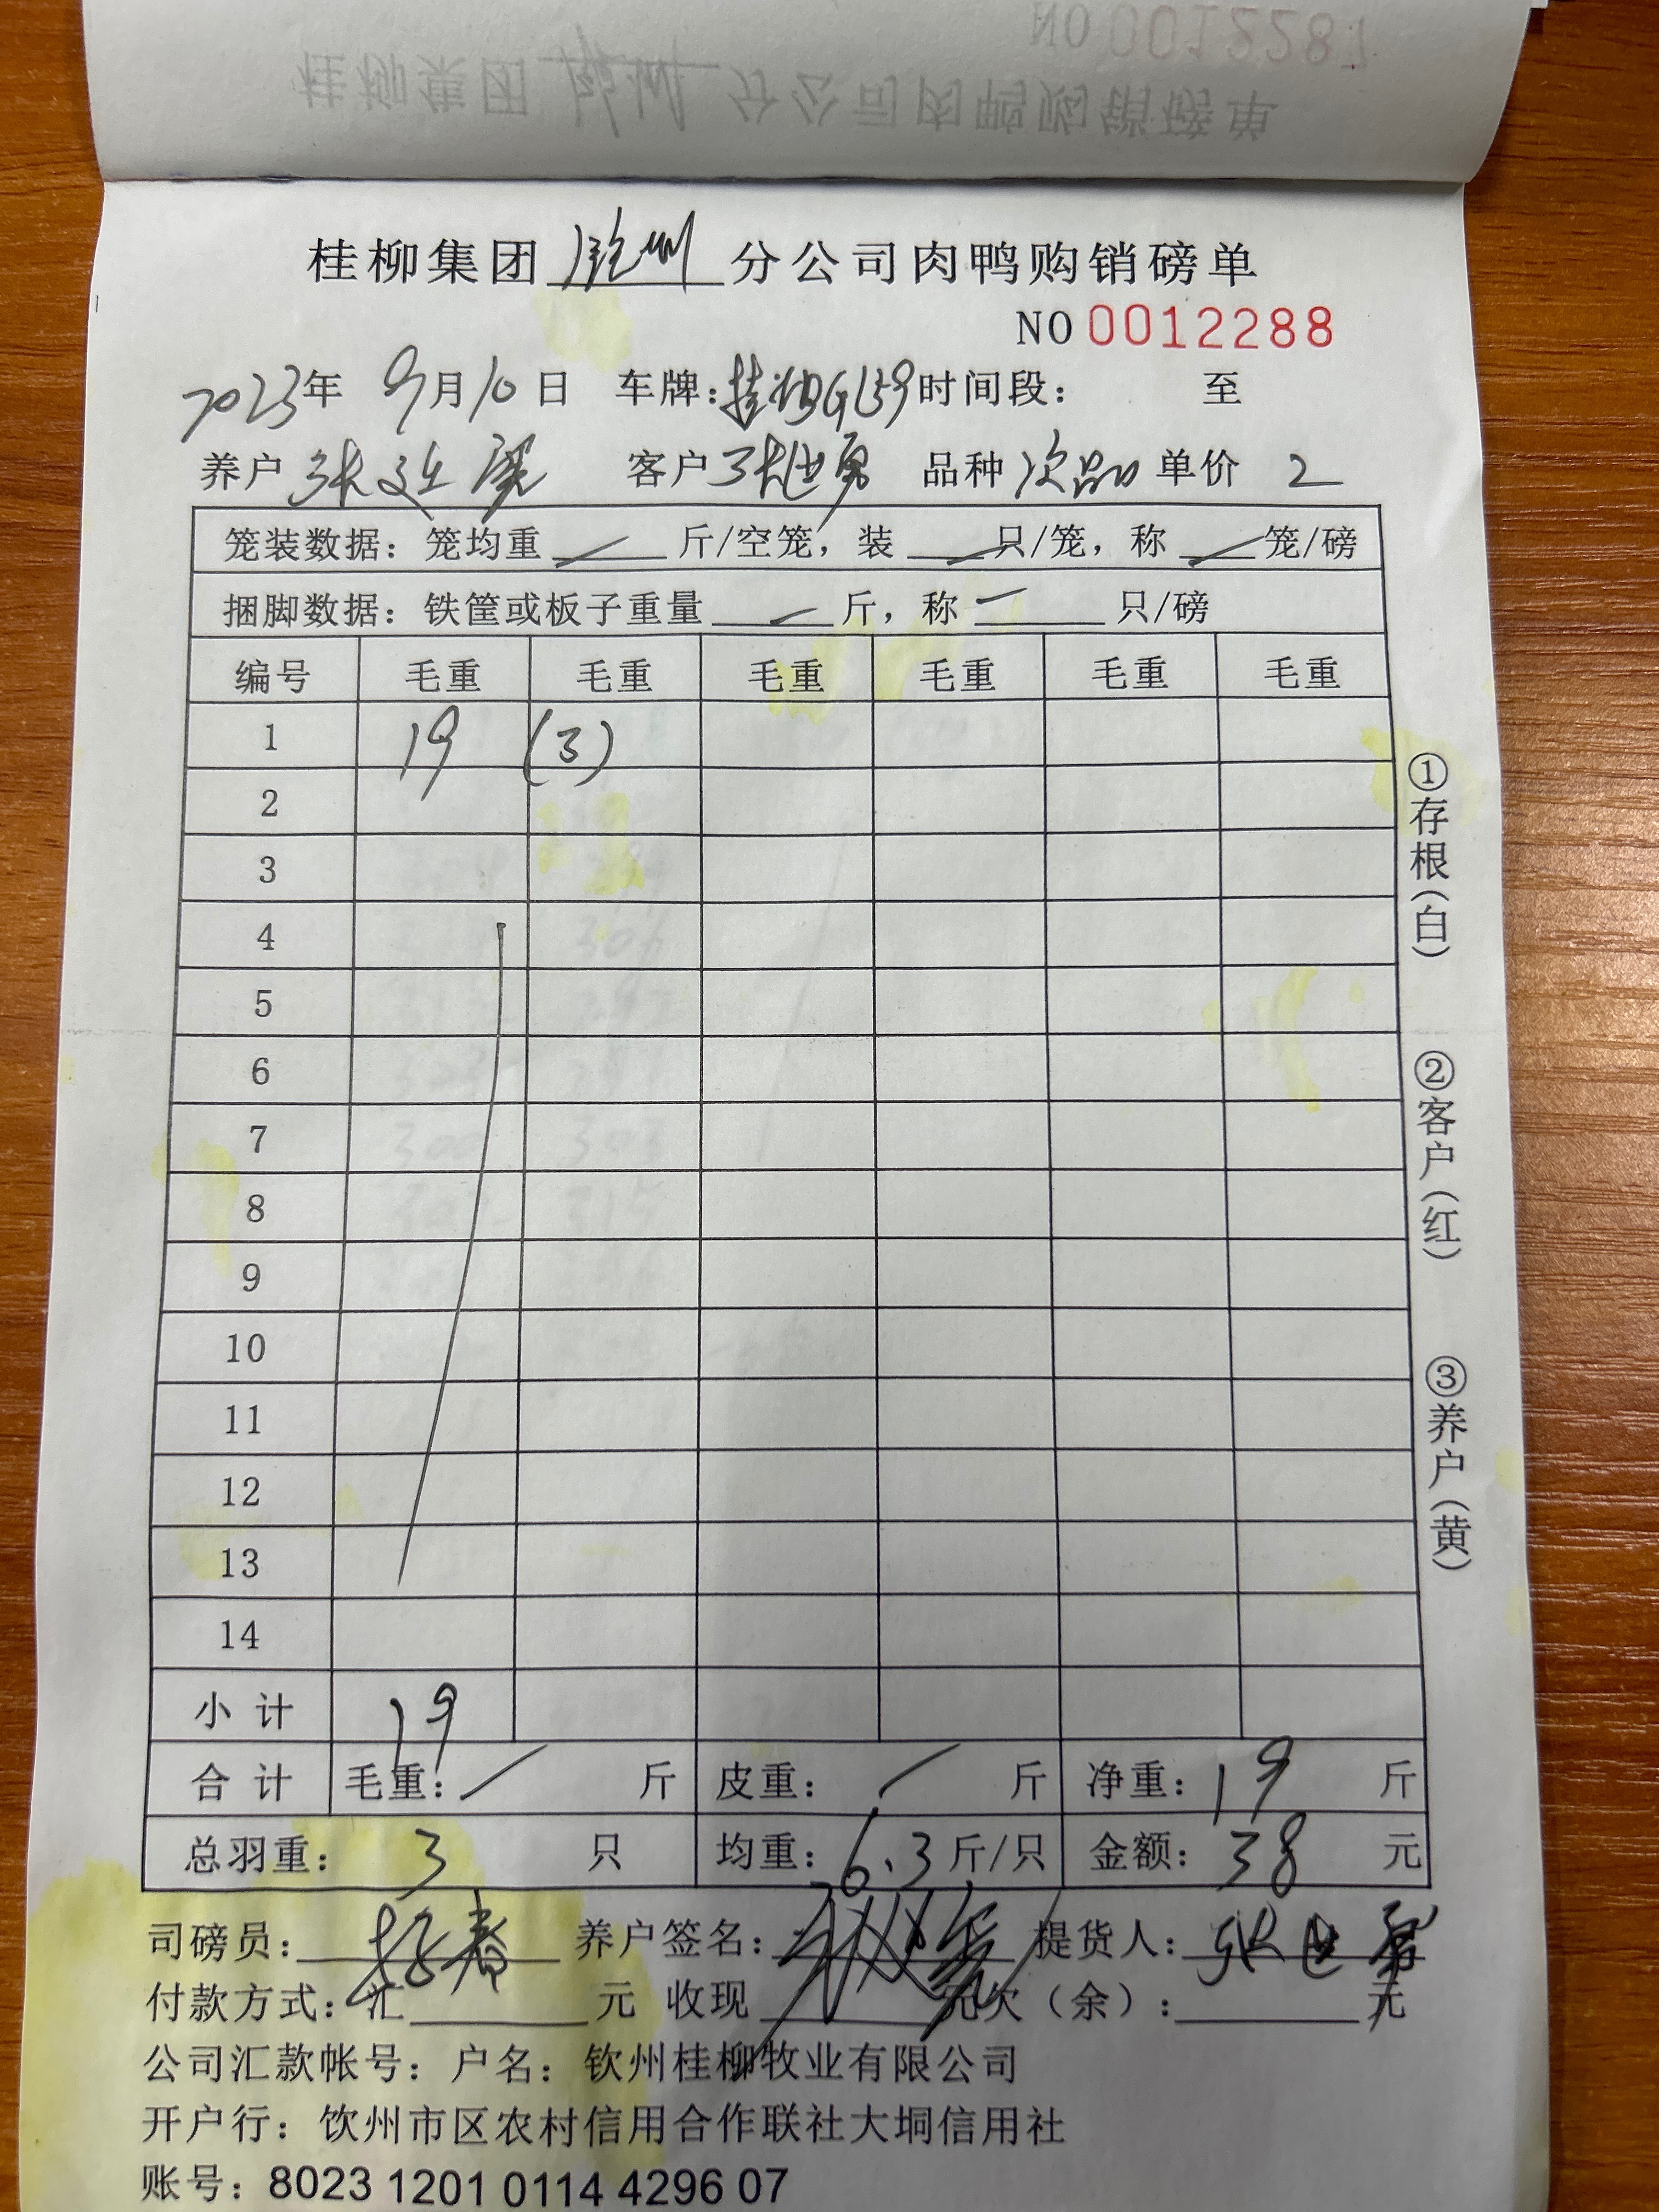 NO 0012287
桂柳集团 钦州 分公司肉鸭购销磅单
桂柳集团 钦州 分公司肉鸭购销磅单
NO 0012288
2023年 9月10日 车牌: 时间段: 至
养户 张 客户 张世勇 品种 次品 单价 2
笼装数据: 笼均重 斤/空笼, 装 只/笼, 称 笼/磅
捆脚数据: 铁筐或板子重量 斤, 称 只/磅
编号 毛重 毛重 毛重 毛重 毛重 毛重
1 19 (3)
2
3
4
5
6
7
8
9
10
11
12
13
14
小计 19
合计 毛重: 斤 皮重: 斤 净重: 19 斤
总羽重: 3 只 均重: 6.3 斤/只 金额: 38 元
司磅员: 养户签名: 提货人: 张世勇
付款方式: 汇 元 收现 元欠(余): 元
公司汇款帐号: 户名: 钦州桂柳牧业有限公司
开户行: 钦州市区农村信用合作联社大垌信用社
账号: 8023 1201 0114 4296 07
①存根(白)
②客户(红)
③养户(黄)